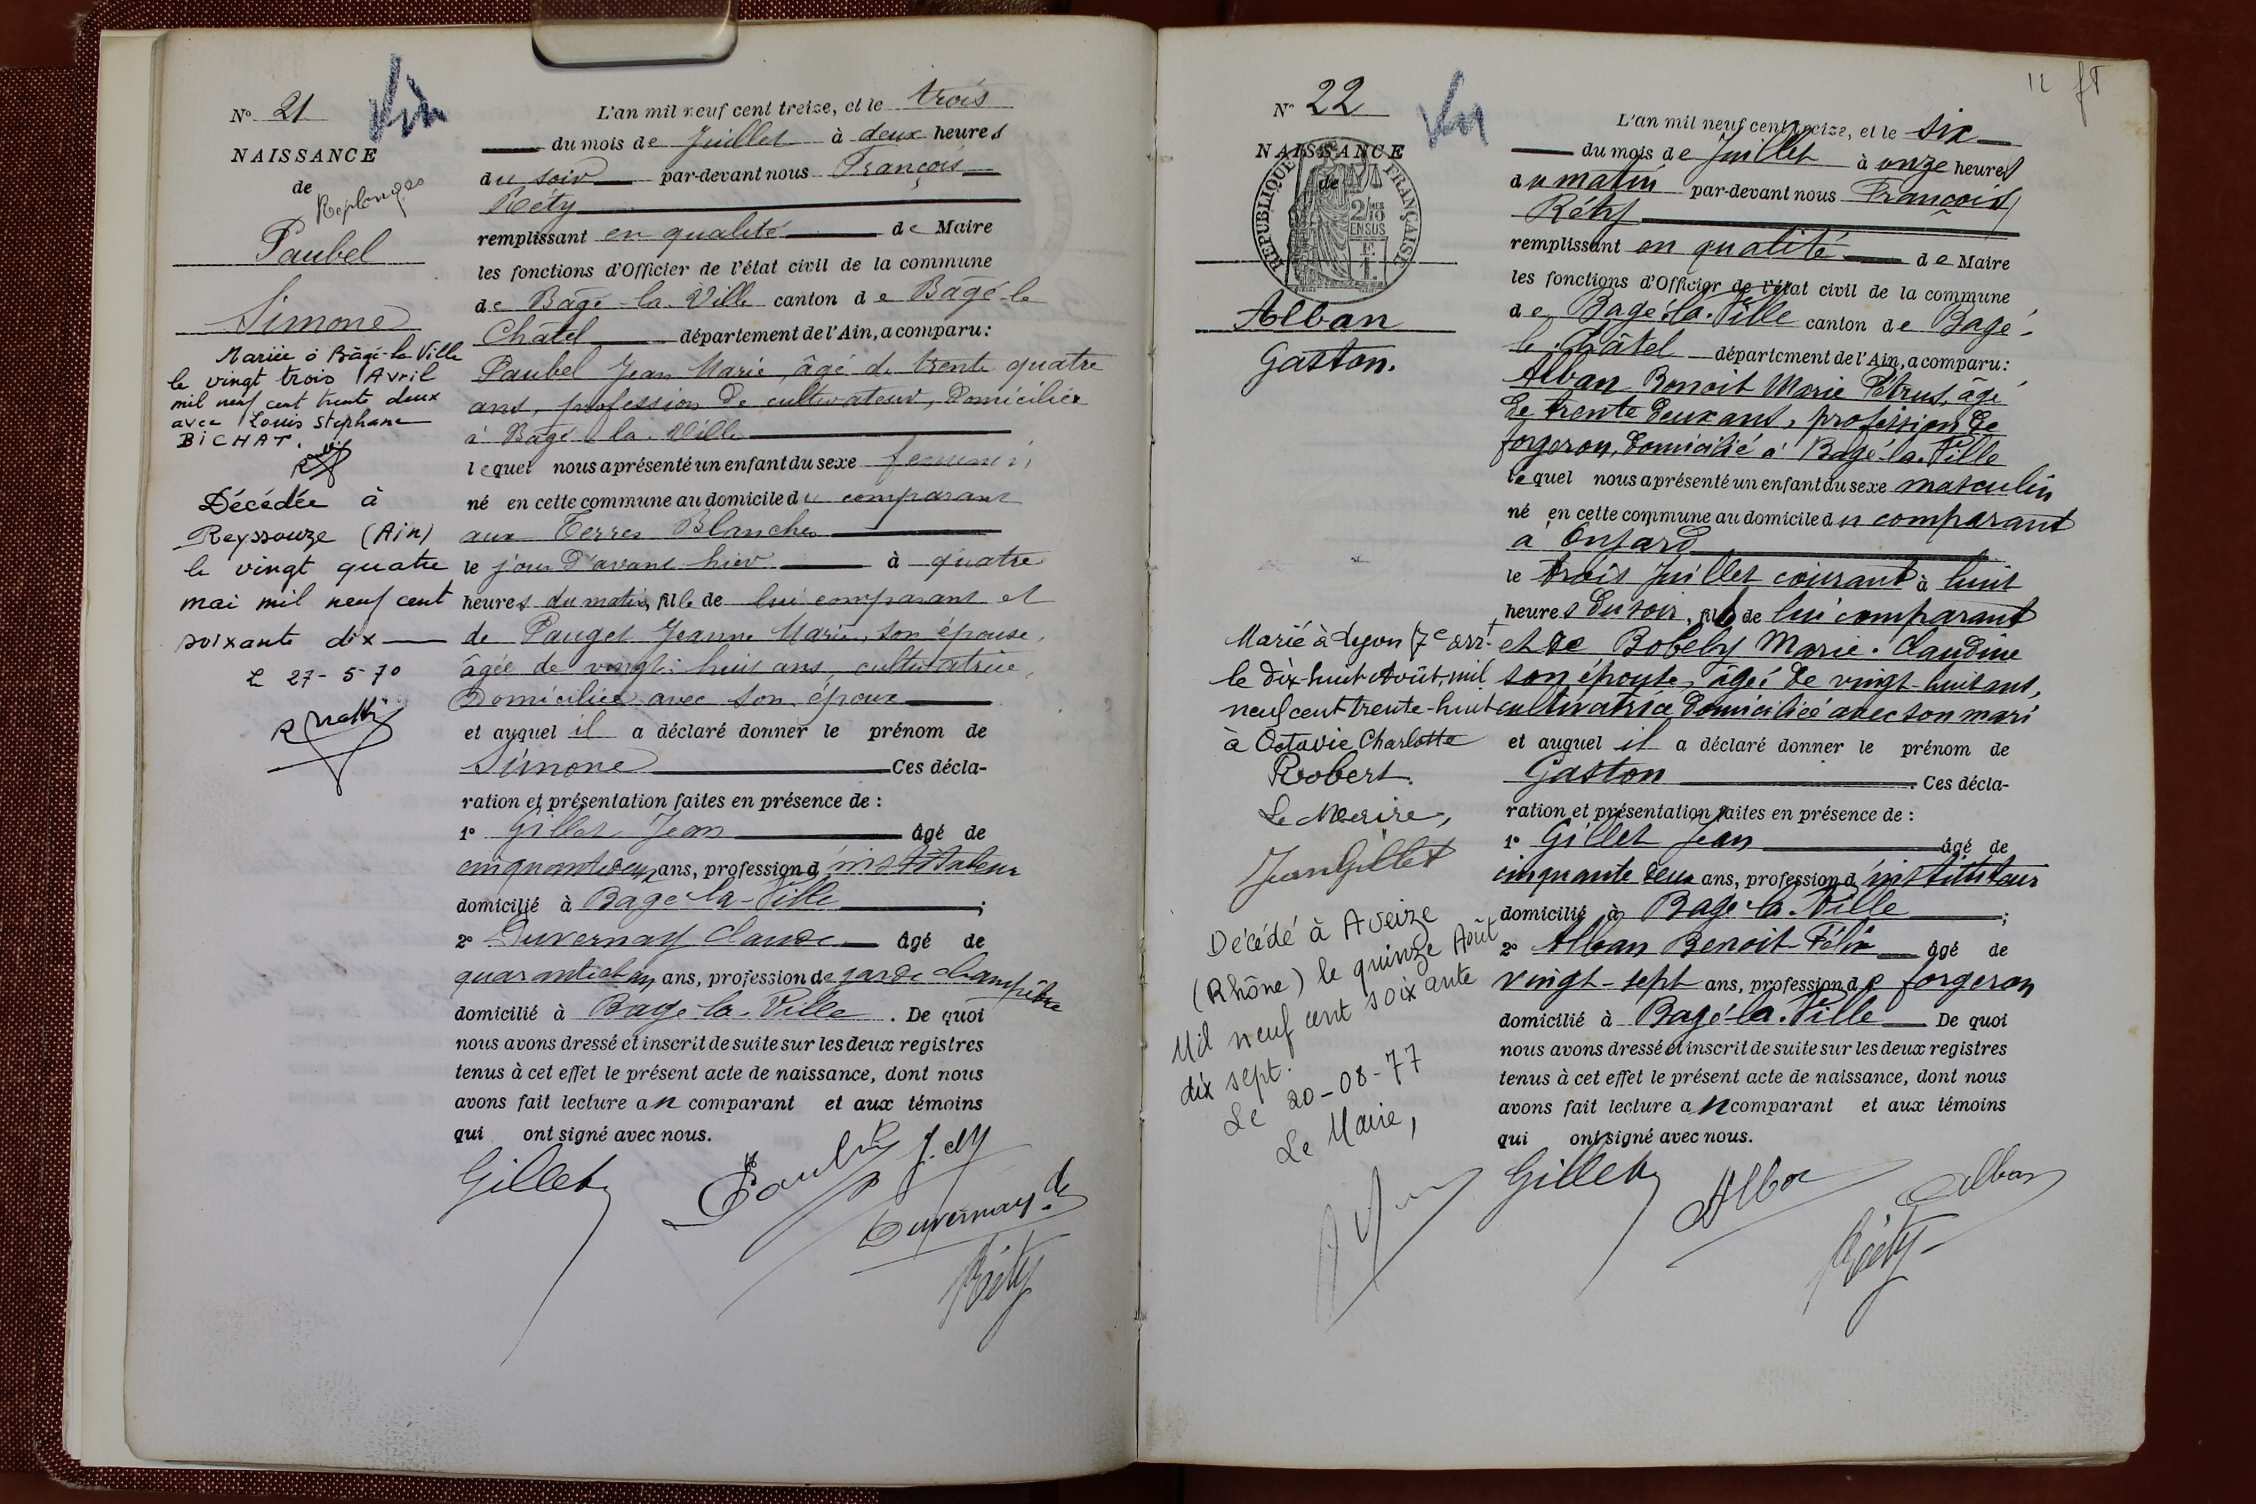 N° 21
NAISSANCE
de
Replonges
Paubel
Simone
Mariée à Bâgé-la Ville
le vingt trois Avril
mil neuf cent trente deux
avec Louis Stephane
BICHAT.
Décédée à
Reyssouze (Ain)
le vingt quatre
mai mil neuf cent
soixante dix
L 27-5-70
L'an mil neuf cent treize, et le trois
du mois de Juillet à deux heures
du soir par-devant nous François
Réty
remplissant en qualité de Maire
les fonctions d'Officier de l'état civil de la commune
de Bâgé-la-Ville canton de Bâgé-le
Châtel département de l'Ain, a comparu:
Paubel Jean Marie, âgé de trente quatre
ans, profession de cultivateur, domicilié
à Bâgé-la-Ville
lequel nous a présenté un enfant du sexe feminin
né en cette commune au domicile du comparant
aux Terres Blanches
le jour d'avant hier à quatre
heures du matin, fille de lui comparant et
de Pauget Jeanne Marie, son épouse,
âgée de vingt-huit ans, cultivatrice,
Domiciliée avec son époux
et auquel il a déclaré donner le prénom de
Simone Ces décla-
ration et présentation faites en présence de :
1° Gillet Jean âgé de
cinquante deux ans, profession d'instituteur
domicilié à Bagé-la-Ville ;
2° Duvernay Claude âgé de
quarante et un ans, profession de garde champêtre
domicilié à Bagé-la-Ville . De quoi
nous avons dressé et inscrit de suite sur les deux registres
tenus à cet effet le présent acte de naissance, dont nous
avons fait lecture au comparant et aux témoins
qui ont signé avec nous.
Gillet Paubel
Duvernay
Réty
12
N° 22
NAISSANCE
de
REPUBLIQUE FRANÇAISE
2/10 EN SUS
Alban
Gaston.
Marié à Lyon (7e arrt
le dix huit Août mil
neuf cent trente-huit
à Octavie Charlotte
Robert.
Le Maire,
Jean Gillet
Décédé à Aveize
(Rhône) le quinze Août
Mil neuf cent soixante
dix sept.
Le 20-08-77
Le Maire,
L'an mil neuf cent treize, et le six
du mois de Juillet à onze heures
du matin par-devant nous François
Réty
remplissant en qualité de Maire
les fonctions d'Officier de l'état civil de la commune
de Bagé-la-Ville canton de Bagé-
le Châtel département de l'Ain, a comparu:
Alban Benoit Marie Pétrus, âgé
de trente deux ans, profession de
forgeron, domicilié à Bagé-la-Ville
lequel nous a présenté un enfant du sexe masculin
né en cette commune au domicile du comparant
à Onjard
le trois Juillet courant à huit
heures du soir, fils de lui comparant
et de Bobely Marie-Claudine
son épouse, âgée de vingt-huit ans,
cultivatrice domiciliée avec son mari
et auquel il a déclaré donner le prénom de
Gaston . Ces décla-
ration et présentation faites en présence de :
1° Gillet Jean âgé de
cinquante deux ans, profession d'instituteur
domicilié à Bagé-la-Ville ;
2° Alban Benoit-Félix âgé de
vingt-sept ans, profession de forgeron
domicilié à Bagé-la-Ville De quoi
nous avons dressé et inscrit de suite sur les deux registres
tenus à cet effet le présent acte de naissance, dont nous
avons fait lecture au comparant et aux témoins
qui ont signé avec nous.
Gillet Alban Alban
Réty